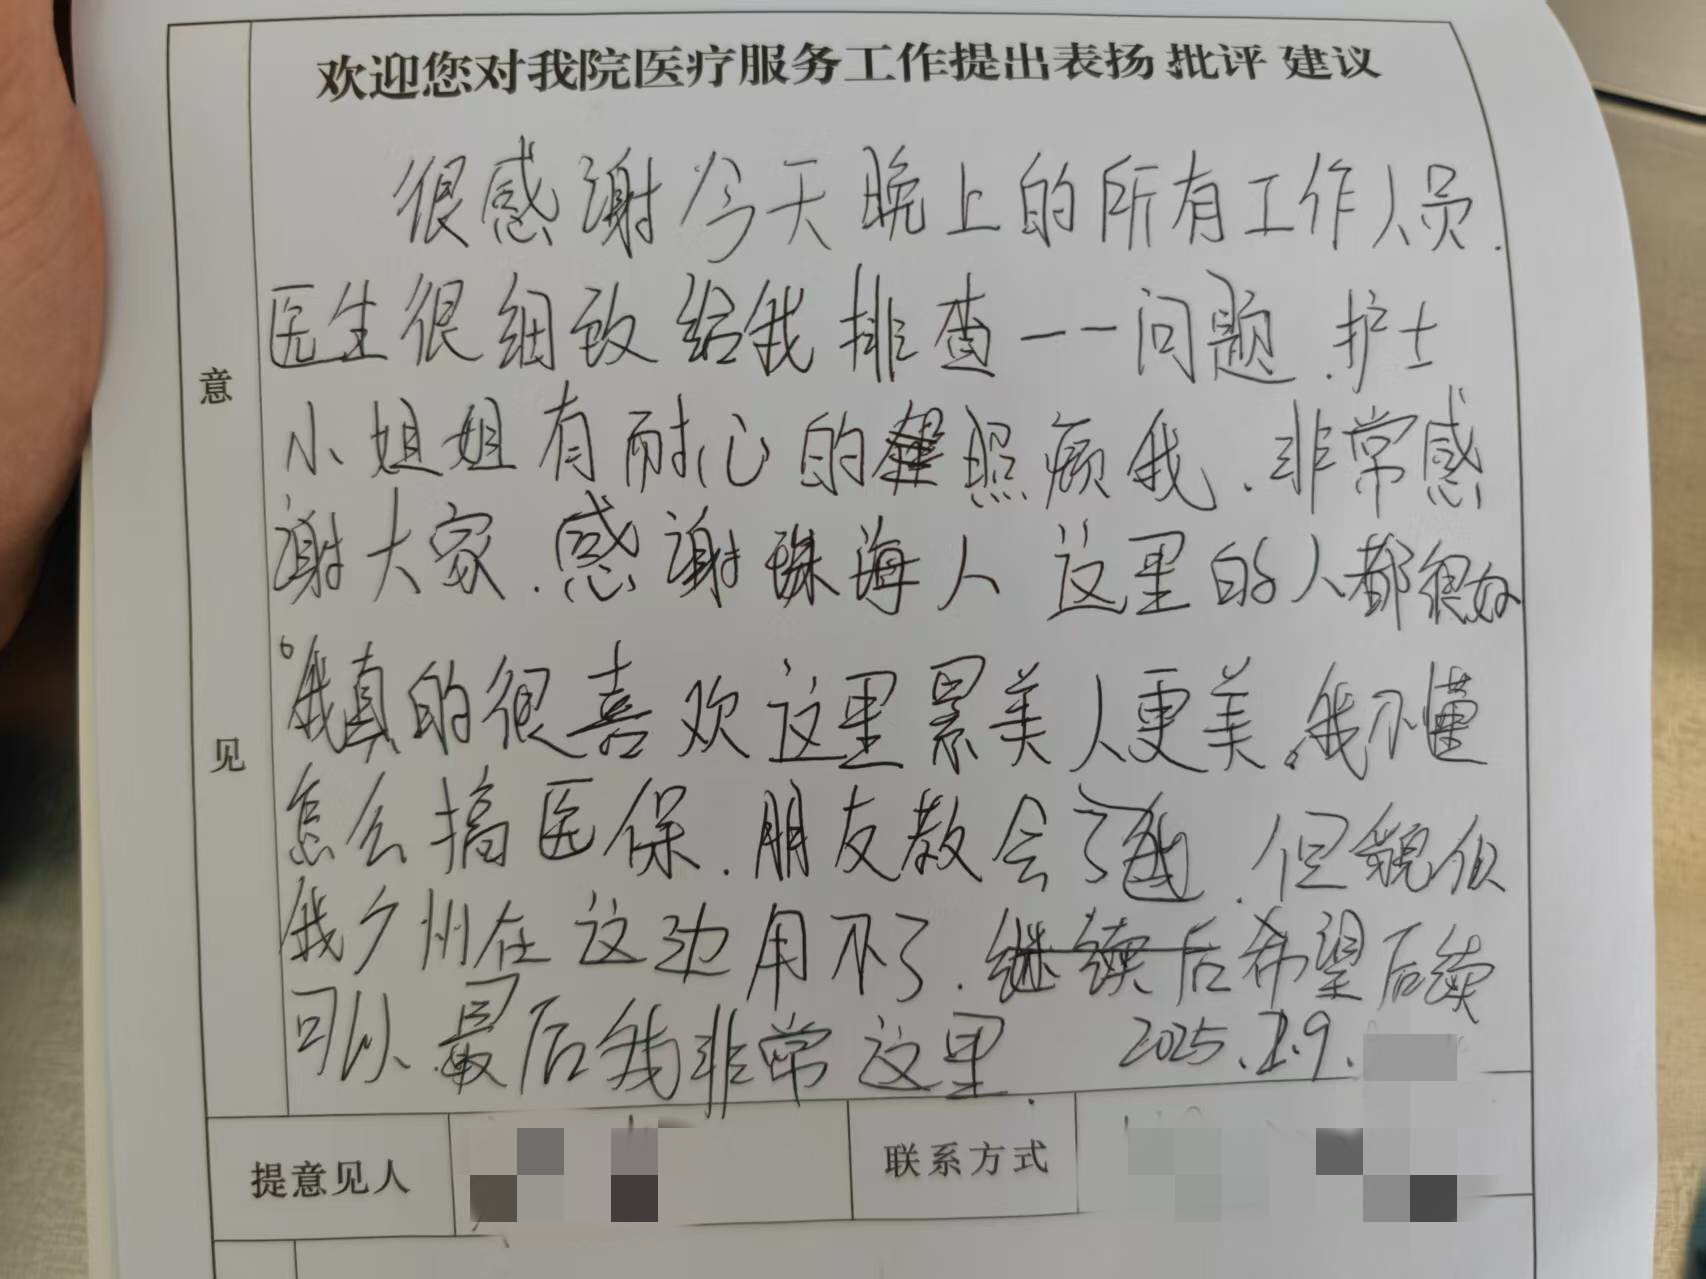 欢迎您对我院医疗服务工作提出表扬 批评 建议
很感谢今天晚上的所有工作人员.
医生很细致给我排查一一问题.护士
小姐姐有耐心的照顾我.非常感
谢大家.感谢珠海人 这里的人都很好
。我真的很喜欢这里景美人更美。我不懂
怎么搞医保.朋友教会了我.但貌似
我广州在这边用不了.继续后希望后续
可以.最后我非常这里.
2025.2.9.
意
见
提意见人
联系方式